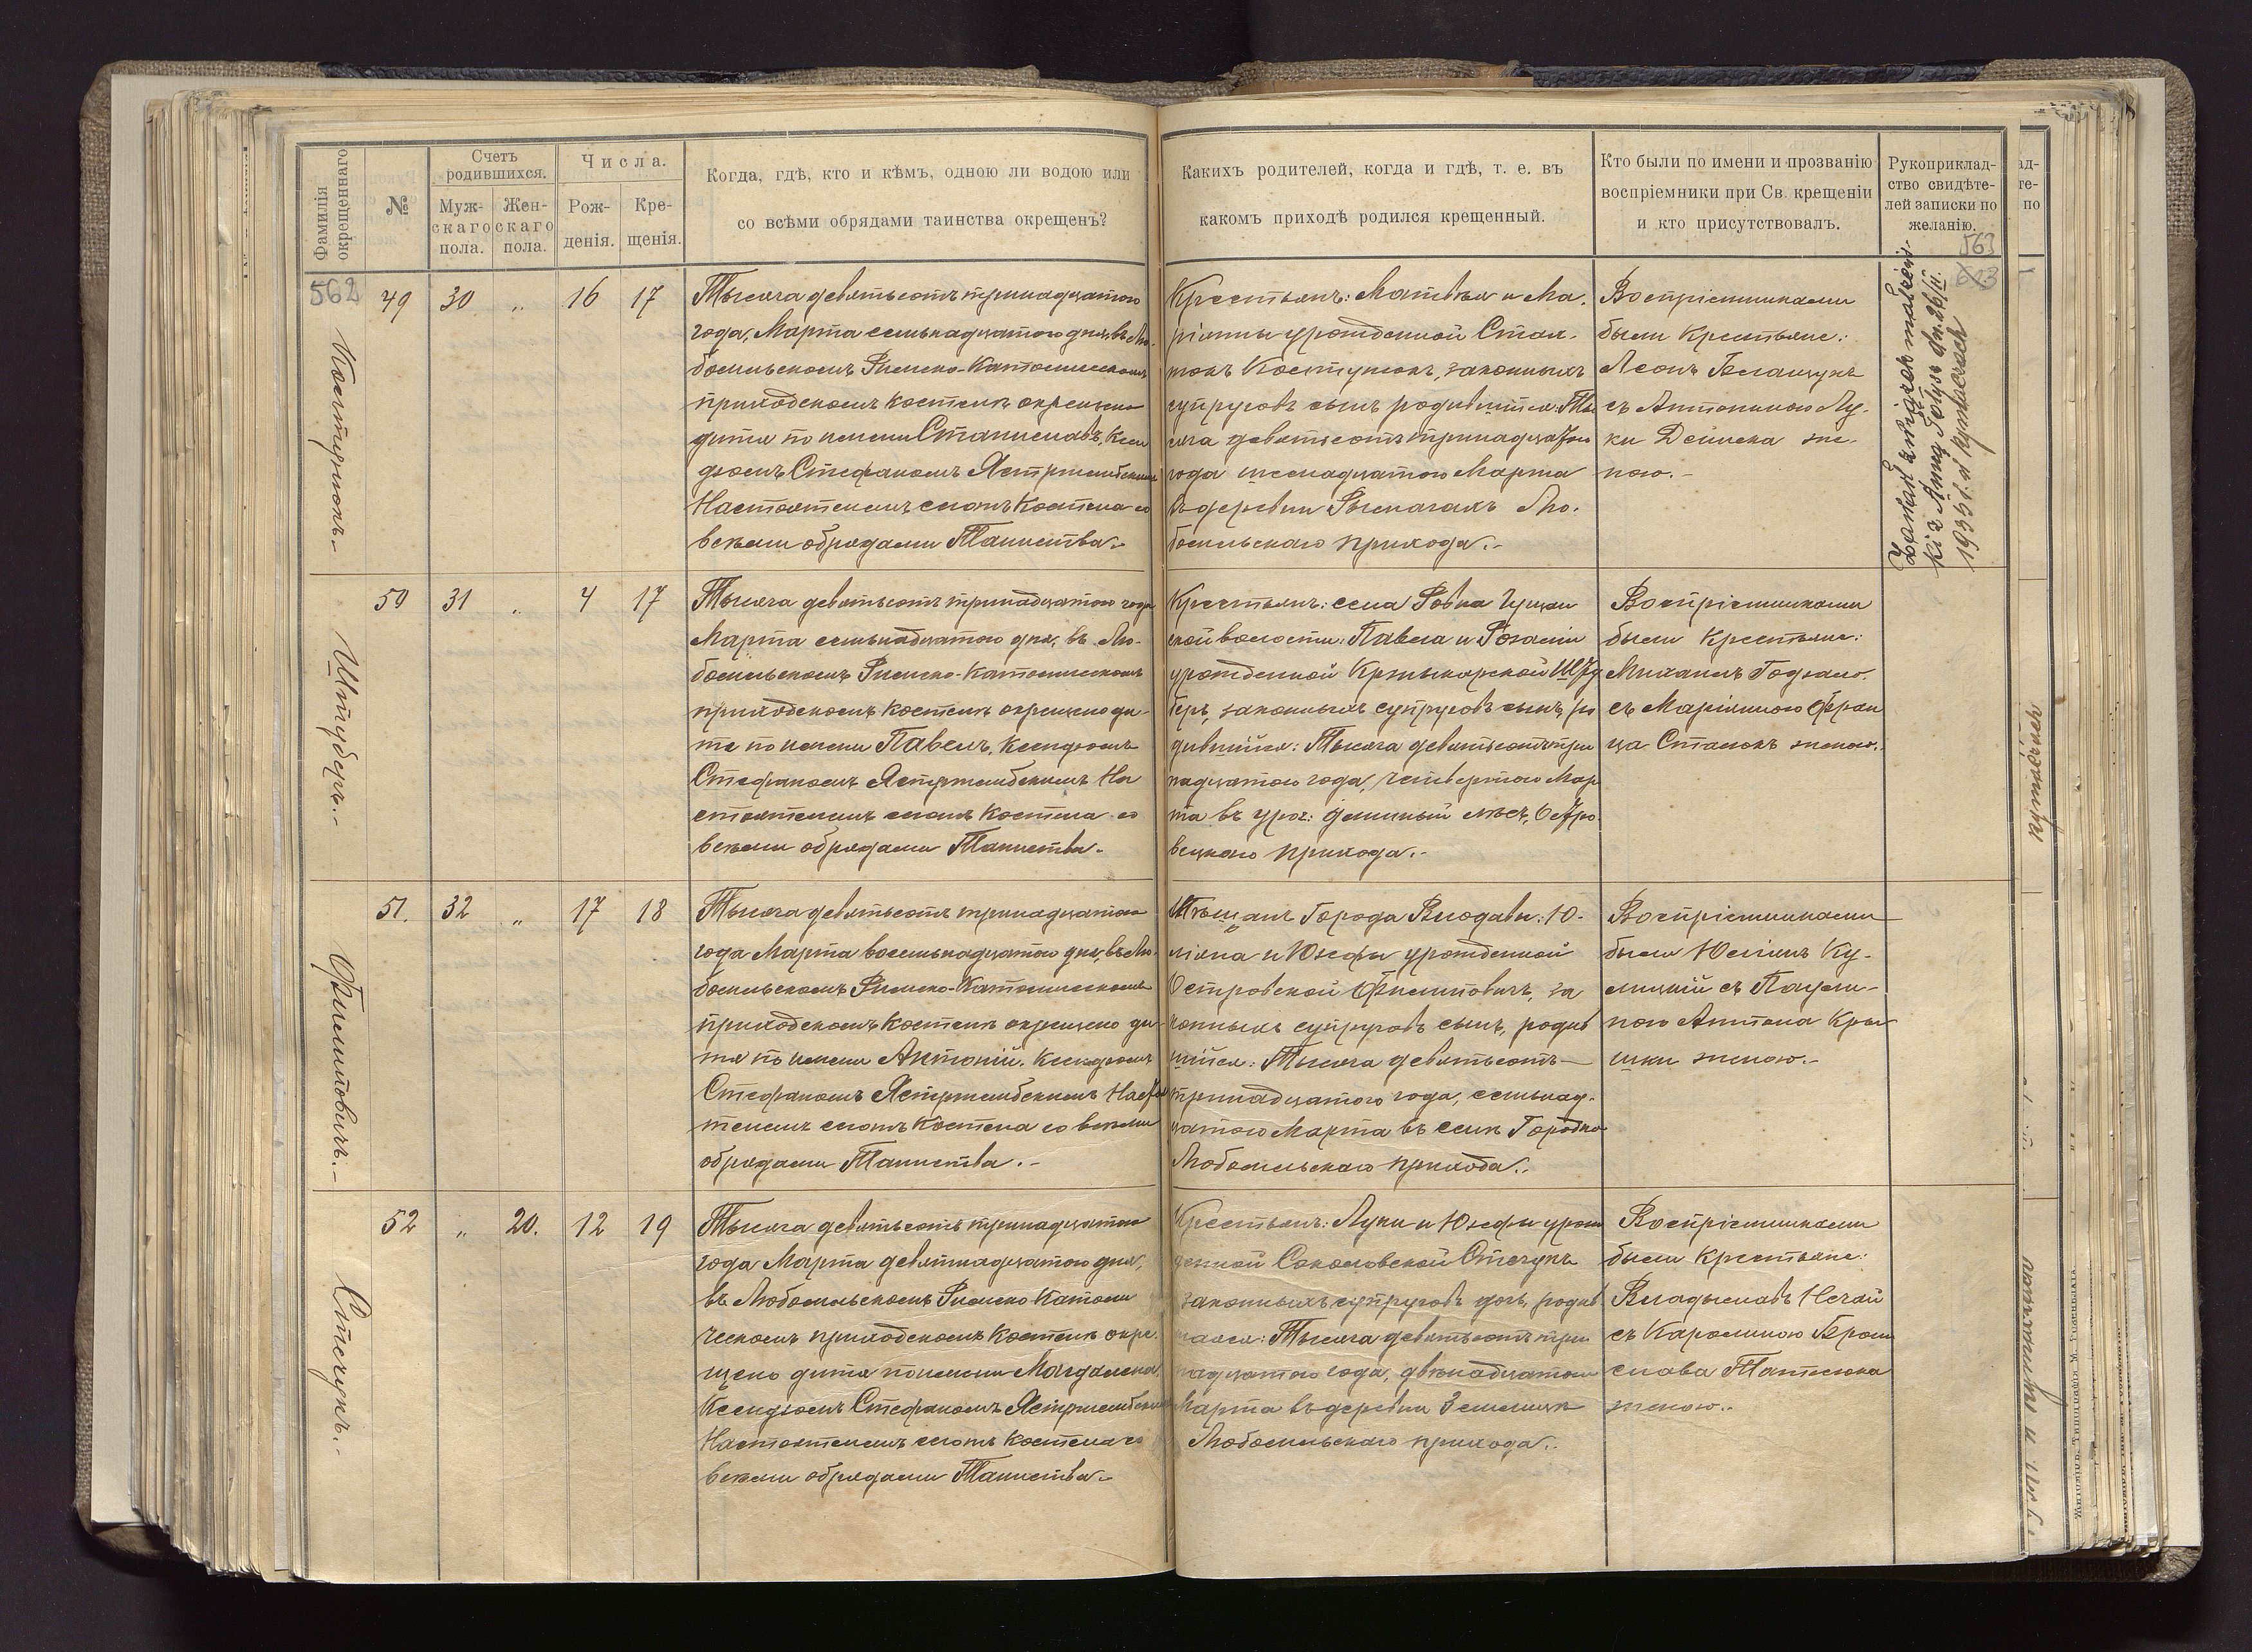 Фамилія окрещеннаго
№
Счетъ родившихся.
Муж-
скаго
пола.
Жен-
скаго
пола.
Числа.
Рож-
денія.
Кре-
щенія.
Когда, гдѣ, кто и кѣмъ, одною ли водою или
со всѣми обрядами таинства окрещенъ?
Какихъ родителей, когда и гдѣ, т. е. въ
какомъ приходѣ родился крещенный.
Кто были по имени и прозванію
воспріемники при Св. крещеніи
и кто присутствовалъ.
Рукоприклад-
ство свидѣте-
лей записки по
желанію.
563
613
562
Костунюкъ.-
49 30 „ 16 17
Тысяча девятьсотъ тринадцатого
года, Марта семьнадцатого дня, въ Лю-
бомльскомъ Римско-Католическомъ
приходскомъ костелѣ окрещено
дитя по имени Станиславъ, Ксен
дзомъ Стефаномъ Ястржембскимъ
Настоятелемъ сного Костела со
всѣми обрядами Таинства.-
Крестьянъ: Матвѣя и Ма-
ріянны урожденной
Костунюкъ, законныхъ
супруговъ сынъ родившійся: Ты
сяча девятьсотъ тринадцатого
года шеснадцатого Марта
въ деревни Рымачахъ Лю-
бомльскаго прихода.-
Воспріемниками
были Крестьяне:
Леонъ
съ Антониною Лу-
ки Дейнека же-
ною.-
Zawarł związek małżeń-
ski z Anną dn. 26/II.
1935 r. w Rymaczach
Штуберъ.-
50 31 „ 4 17
Тысяча девятьсотъ тринадцатого года
Марта семьнадцатого дня, въ Лю-
бомльскомъ Римско-Католическомъ
приходскомъ костелѣ окрещено ди-
тя по имени Павелъ, Ксендзомъ
Стефаномъ Ястржембскимъ На
стоятелемъ сного Костела со
всѣми обрядами Таинства.-
Крестьянъ: села Ровна
волости: Павла и Розаліи
урожденной Шту
беръ, законныхъ супруговъ сынъ, ро
дившійся: Тысяча девятьсотъ три
надцатого года, четвертого Мар
та въ уроч:
прихода.-
Воспріемниками
были Крестьяне:
Михаилъ
съ Маріянною Фран
ца женою.-
Филиповичъ.-
51. 32 „ 17 18
Тысяча девятьсотъ тринадцатого
года Марта восемьнадцатого дня, въ Лю-
бомльскомъ Римско-Католическомъ
приходскомъ костелѣ окрещено ди-
тя по имени Антоній, Ксендзомъ
Стефаномъ Ястржембскимъ Настоя
телемъ сного Костела со всѣми
обрядами Таинства.-
Мѣщанъ Города Влодавы: Ю-
ліяна и Юзефы урожденной
Островской Филиповичъ, за
конныхъ супруговъ сынъ, родив
шійся: Тысяча девятьсотъ
тринадцатого года, семьнад-
цатого Марта въ селѣ Городно
Любомльскаго прихода.-
Воспріемниками
были Юліянъ Ку-
лицкій съ Паули-
ною Антона Кры
шки женою.-
Стечукъ.-
52 „ 20. 12 19
Тысяча девятьсотъ тринадцатого
года Марта девятнадцатого дня,
въ Любомльскомъ Римско Католи
ческомъ приходскомъ костелѣ окре-
щено дитя по имени Магдалена,
Ксендзомъ Стефаномъ Ястржембскимъ
Настоятелемъ сного Костела со
всѣми обрядами Таинства.-
Крестьянъ: Луки и Юзефы урож
денной Соколовской Стечукъ
законныхъ супруговъ дочь, родив
шаяся: Тысяча девятьсотъ три
надцатого года, двѣнадцатого
Марта въ деревни
Любомльскаго прихода.-
Воспріемниками
были Крестьяне:
Владыславъ Нечай
съ Каролиною Брони
слава
женою.-